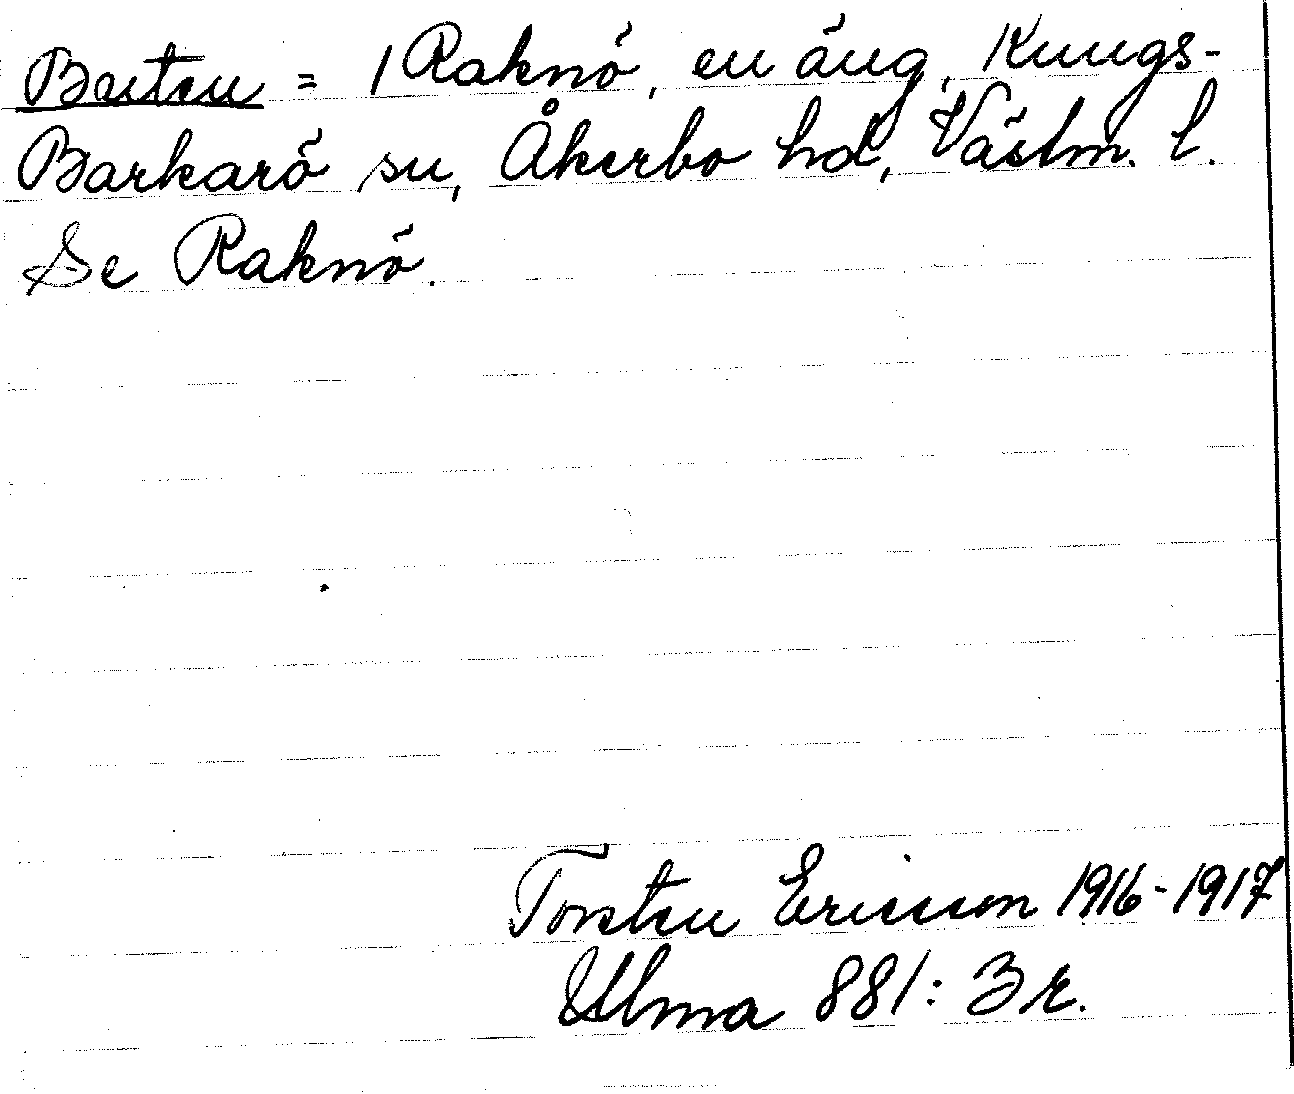 Beiten = 1 Raknö, en äng, Kungs-
Barkarö sn, Åkerbo hd, Västm. l.
Se Raknö.
Torsten Ericsson 1916-1917
Ulma 881: 3 r.